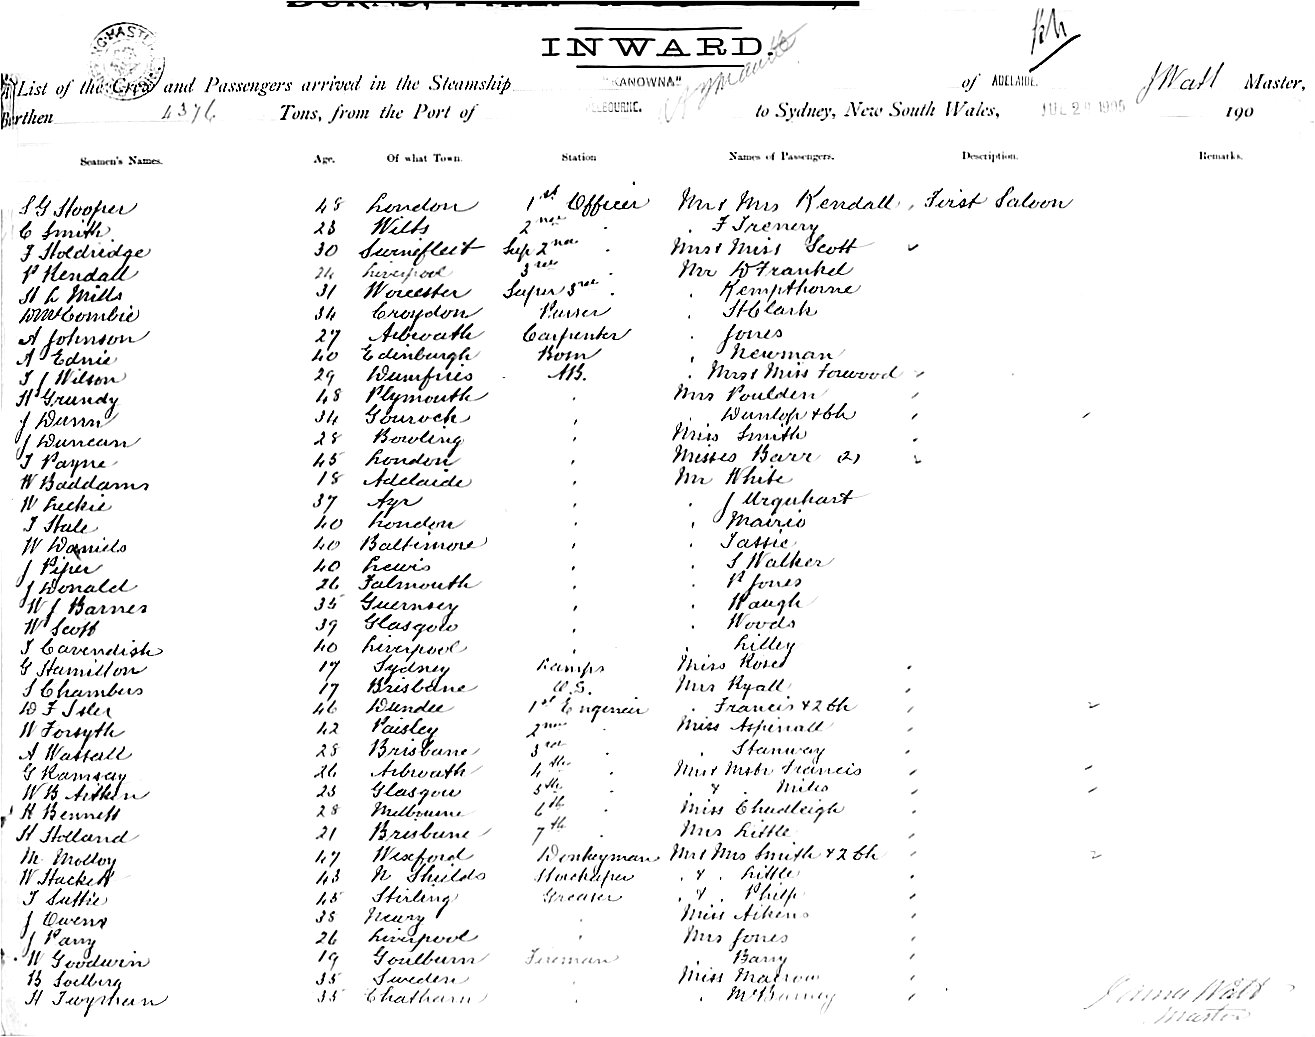 INWARD.
List of the Crew and Passengers arrived in the Steamship "KANOWNA" of ADELAIDE. J Watt Master,
Burthen 4376 Tons, from the Port of MELBOURNE. to Sydney, New South Wales, JUL 29 1905 190
Seamen's Names. Age. Of what Town. Station Names of Passengers. Description. Remarks.
S G Hooper 48 London 1st Officer Mr & Mrs Kendall , First Saloon
C Smith 23 Wilts 2nd . . F Trenery
F Holdridge 30 Swinefleet Sup 2nd . Mrs & Miss Scott
P Kendall 24 Liverpool 3rd Mr D Frankel
H L Mills 31 Worcester Super 3rd . . Kempthorne
W McCombie 34 Croydon Purser . H Clark
A Johnson 27 Arbroath Carpenter . Jones
A Ednie 40 Edinburgh Bosn . Newman
T J Wilson 29 Dumfries AB. . Mrs & Miss Forwood
H Grundy 48 Plymouth , Mrs Poulden
J Dunn 34 Gourock , . Dunlop & Ch
J Duncan 28 Bowling , Miss Smith
T Payne 45 London , Misses Barr (2)
W Baddams 18 Adelaide , Mr White
W Leckie 37 Ayr , . J Urquhart
T Hale 40 London , .
W Daniels 40 Baltimore , . Tassie
J Piper 40 Lewis , . S Walker
J Donald 26 Falmouth , . P Jones
W J Barnes 35 Guernsey , . Waugh
W Scott 39 Glasgow , . Woods
T Cavendish 40 Liverpool , . Lilley
G Hamilton 17 Sydney Lamps Miss Rose
S Chambers 17 Brisbane O.S. Mrs Ryall
D F Isler 46 Dundee 1st Engineer . Francis & 2 Ch 2
W Forsyth 42 Paisley 2nd . Miss Aspinall
A Wassall 28 Brisbane 3rd . Stanway
G Ramsay 26 Arbroath 4th . Mr & Mstr Francis
W B Aitken 23 Glasgow 5th . . & . Miles
R Bennett 28 Melbourne 6th . Miss Chudleigh
H Holland 21 Brisbane 7th . Mrs Little
M Molloy 47 Wexford Donkeyman Mr & Mrs Smith & 2 Ch 2
W Hackett 43 N Shields Storekeeper . & . Little
T Suttie 45 Stirling Greaser . & . Philp
J Owens 38 Newry . Miss Aikens
J Parry 26 Liverpool . Mrs Jones
W Goodwin 19 Goulburn Fireman . Barry
B Soelberg 35 Sweden . Miss Marrow
H Twyman 35 Chatham . . McBurney
James Watt
Master